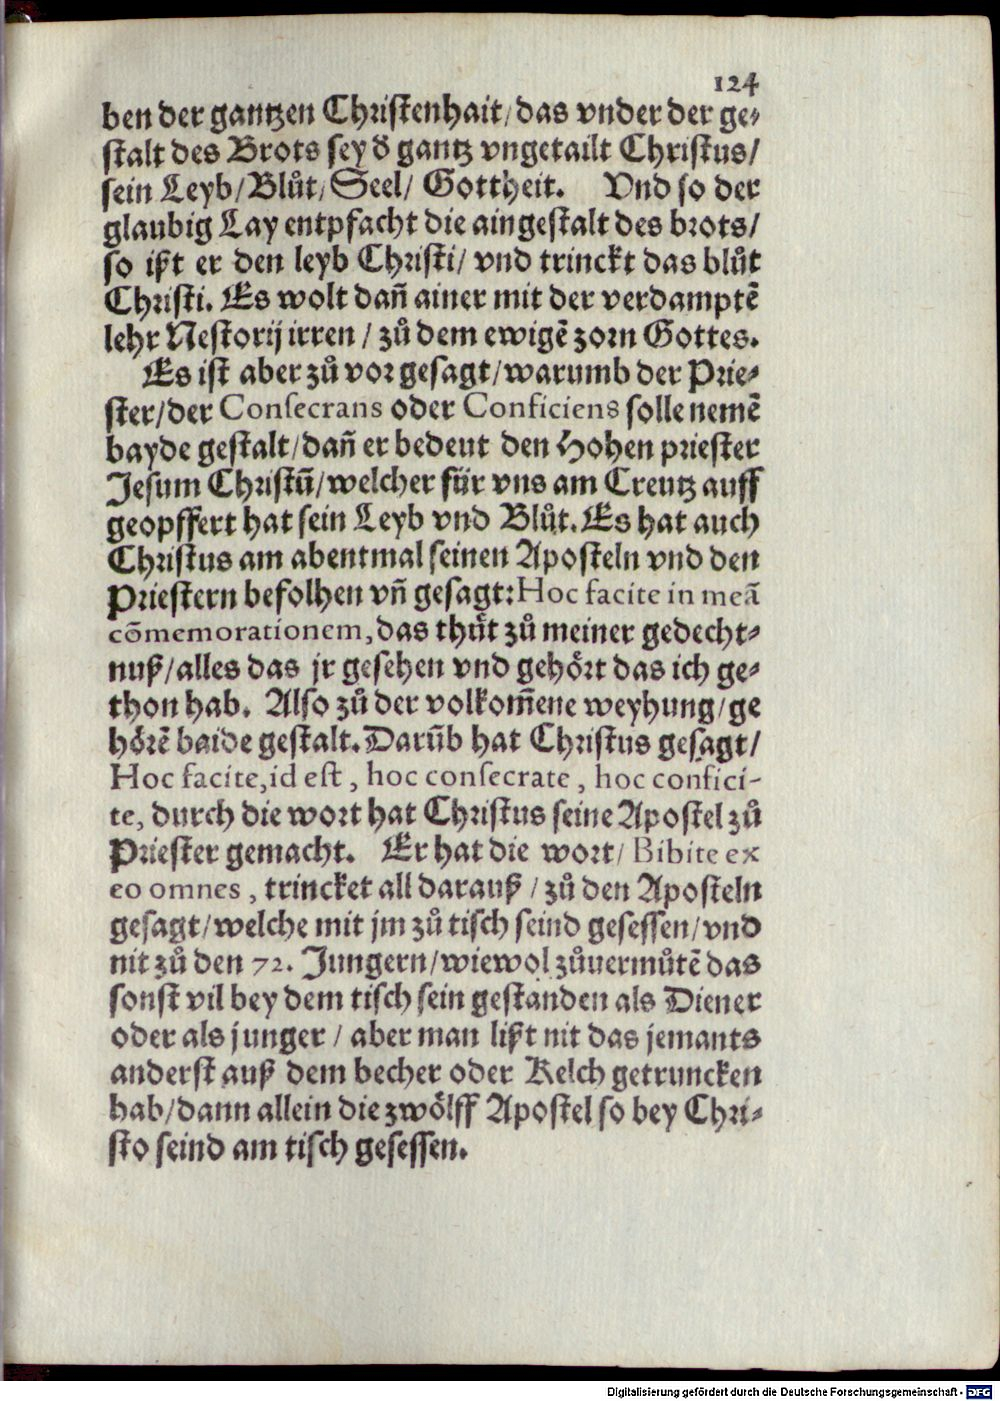 124
ben der gantzen Christenhait/das vnder der ge⸗
stalt des Brots sey d̕ gantz vngetailt Christus/
sein Leyb/Blůt/Seel/ Gottheit. Vnd so der
glaubig Lay entpfacht die aingestalt des brots/
so ißt er den leyb Christi/ vnd trinckt das blůt
Christi. Es wolt dañ ainer mit der verdamptẽ
lehr Nestorij irren / zů dem ewigẽ zorn Gottes.
Es ist aber zů vor gesagt/warumb der Prie⸗
ster/der Consecrans oder Conficiens solle nemẽ
bayde gestalt/dañ er bedeut den Hohen priester
Jesum Christũ/welcher für vns am Creutz auff
geopffert hat sein Leyb vnd Blůt. Es hat auch
Christus am abentmal seinen Aposteln vnd den
Priestern befolhen vñ gesagt: Hoc facite in meã
cõmemorationem, das thůt zů meiner gedecht⸗
nuß/alles das jr gesehen vnd gehört das ich ge⸗
thon hab. Also zů der volkom̃ene weyhung/ge
hörẽ baide gestalt. Darũb hat Christus gesagt/
Hoc facite, id est, hoc consecrate, hoc confici-
te, durch die wort hat Christus seine Apostel zů
Priester gemacht. Er hat die wort/ Bibite ex
eo omnes, trincket all darauß / zů den Aposteln
gesagt/welche mit jm zů tisch seind gesessen/vnd
nit zů den 72. Jungern/wiewol zůuermůtẽ das
sonst vil bey dem tisch sein gestanden als Diener
oder als junger / aber man lißt nit das jemants
anderst auß dem becher oder Kelch getruncken
hab/dann allein die zwölff Apostel so bey Chri⸗
sto seind am tisch gesessen.
Digitalisierung gefördert durch die Deutsche Forschungsgemeinschaft - DFG